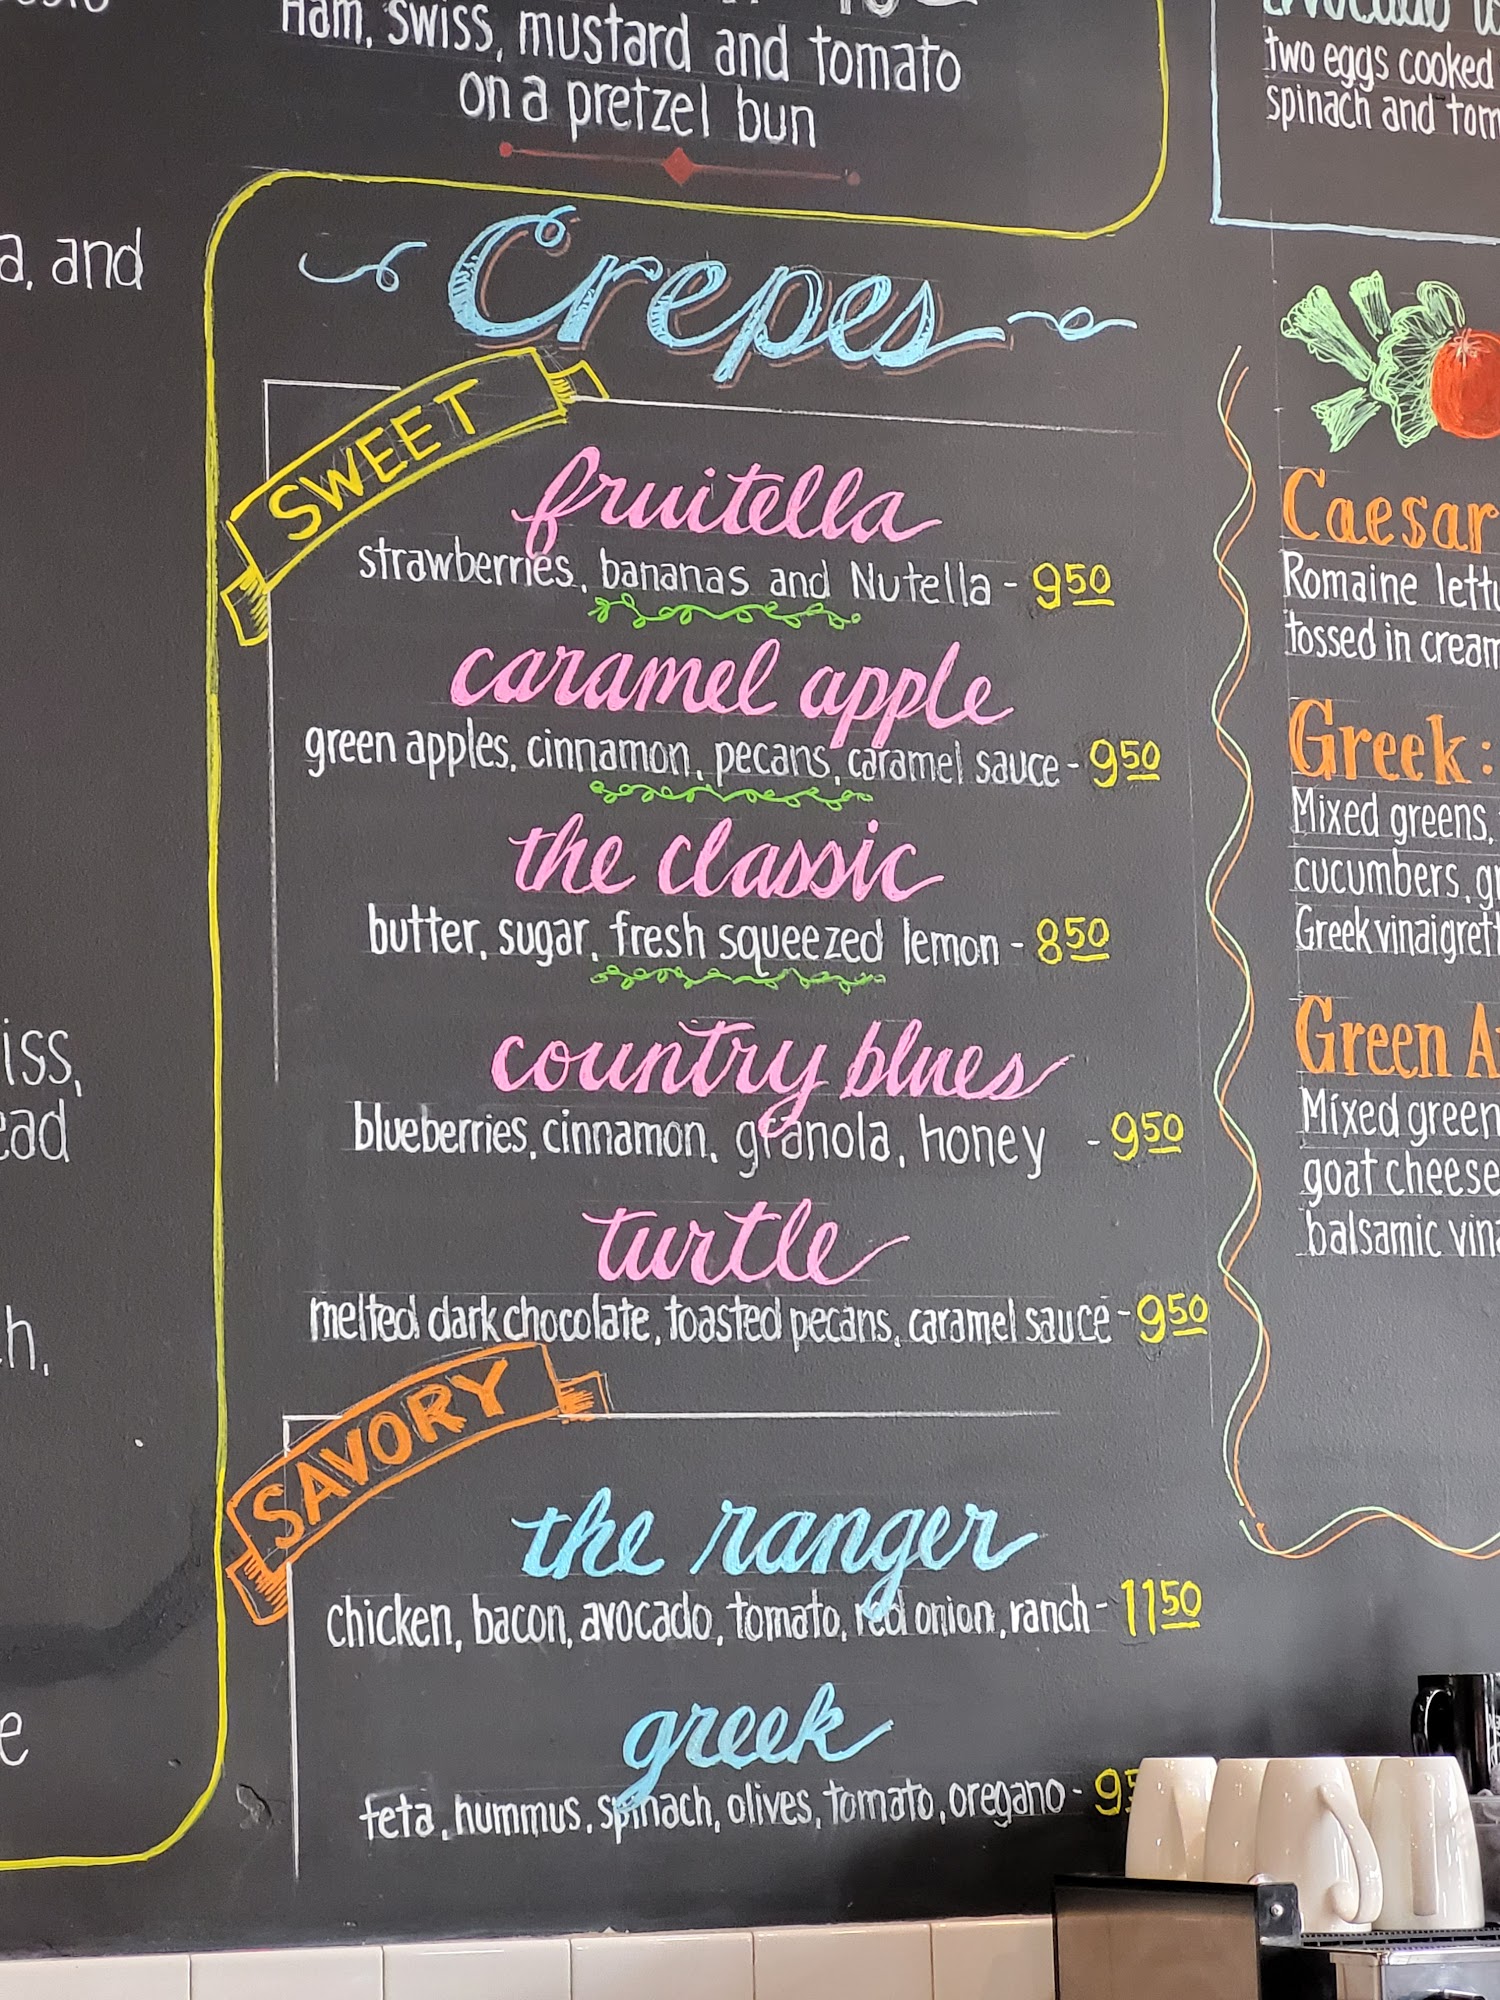 Ham, Swiss, mustard and tomato
on a pretzel bun
two eggs cooked
spinach and
a, and
Crepes
SWEET
fruitella
strawberries, bananas and Nutella - 9 50
caramel apple
green apples, cinnamon, pecans, caramel sauce - 9 50
the classic
butter, sugar, fresh squeezed lemon - 8 50
country blues
blueberries, cinnamon, granola, honey - 9 50
turtle
melted dark chocolate, toasted pecans, caramel sauce - 9 50
SAVORY
the ranger
chicken, bacon, avocado, tomato, red onion, ranch - 11 50
greek
feta, hummus, spinach, olives, tomato, oregano - 9
Caesar
Romaine
tossed in cream
Greek:
Mixed greens,
cucumbers,
Greek
Green
Mixed green
goat cheese
balsamic